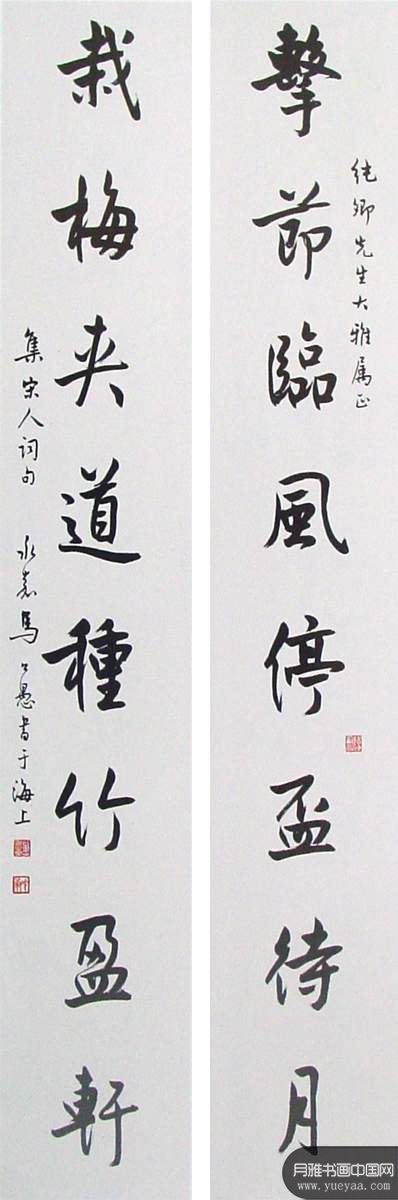 擊節臨風停盃待月
纯卿先生大雅属正
栽梅夹道種竹盈軒
集宋人词句 永嘉馬公愚书于海上
月雅书画中国网
www.yueyaa.com